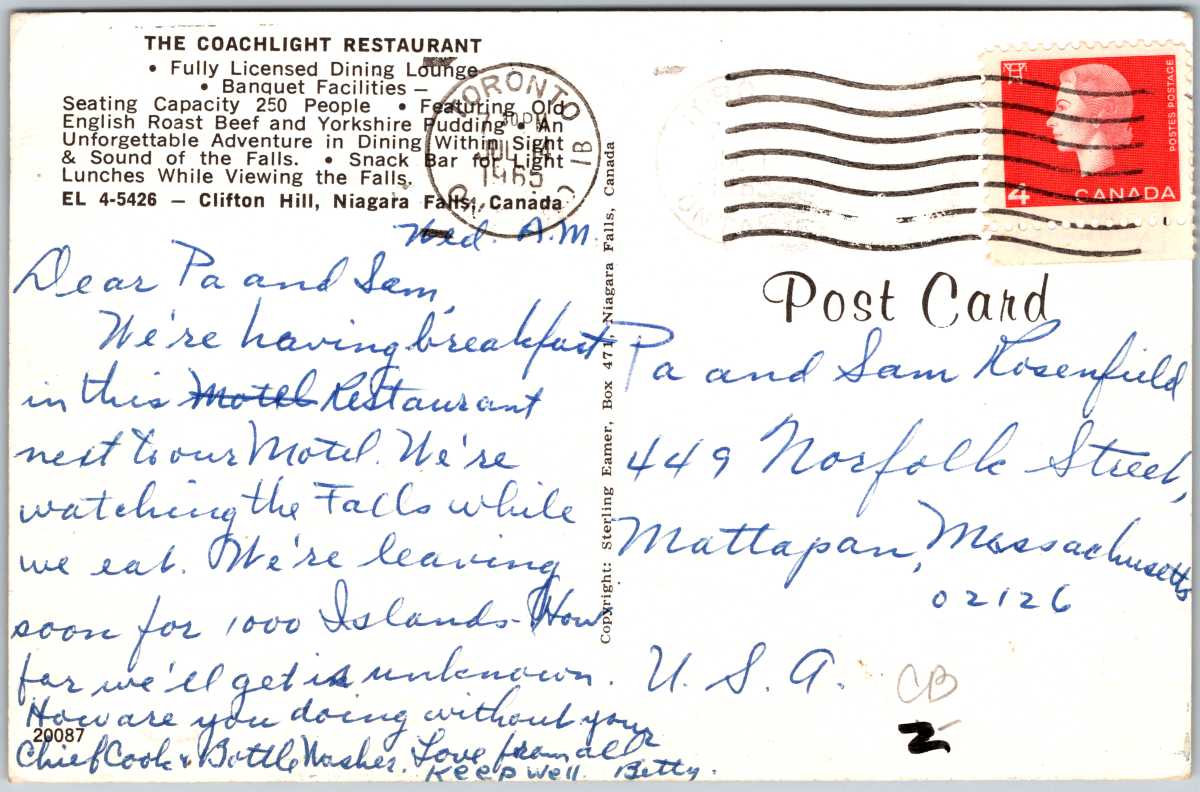 THE COACHLIGHT RESTAURANT
• Fully Licensed Dining Lounge
• Banquet Facilities —
Seating Capacity 250 People • Featuring Old
English Roast Beef and Yorkshire Pudding • An
Unforgettable Adventure in Dining Within Sight
& Sound of the Falls. • Snack Bar for Light
Lunches While Viewing the Falls.
EL 4-5426 — Clifton Hill, Niagara Falls, Canada
TORONTO
1965
Wed. A.M.
Dear Pa and Sam,
We're having breakfast
in this Motel Restaurant
next to our Motel. We're
watching the Falls while
we eat. We're leaving
soon for 1000 Islands - How
far we'll get is unknown.
How are you doing without your
Chief Cook & Bottle Washer. Love from all
Keep well. Betty.
20087
Copyright: Sterling Eamer, Box 471, Niagara Falls, Canada
POSTES POSTAGE
4 CANADA
Post Card
Pa and Sam Rosenfield
449 Norfolk Street,
Mattapan, Massachusetts
02126
U. S. A.
CB
2